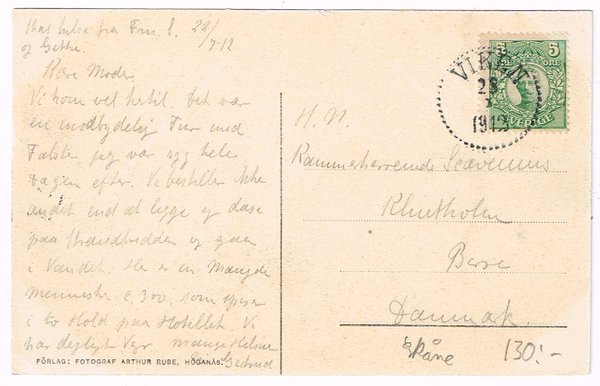 Skal hilse fra Frm. E. 22/7-12
og Grethe.
Kære Moder
Vi kom vel hertil. Det var
en modbydelig Tur med
Falster, jeg var syg hele
Dagen efter. Vi bestiller ikke
andet end at ligge og dase
paa Strandbredden og gaa
i Vandet. Her er en Mængde
mennesker c 300, som spiser
i to Hold paa Hotellet. Vi
har dejligt Vejr mange Hilsner
Gertrud
FÖRLAG: FOTOGRAF ARTHUR RUBE, HÖGANÄS.
5 ÖRE 5
SVERIGE
VIKEN
23
7
1912
H. N.
Kammerherreinde Scavenius
Klintholm
Borre
Danmark.
Skåne 130:-